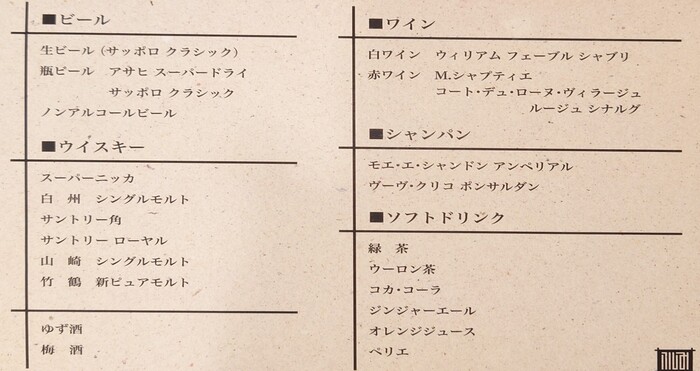 ■ビール
生ビール (サッポロ クラシック)
瓶ビール アサヒ スーパードライ
サッポロ クラシック
ノンアルコールビール
■ウイスキー
スーパーニッカ
白 州 シングルモルト
サントリー角
サントリー ローヤル
山 崎 シングルモルト
竹 鶴 新ピュアモルト
ゆず酒
梅 酒
■ワイン
白ワイン ウィリアム フェーブル シャブリ
赤ワイン M.シャプティエ
コート・デュ・ローヌ・ヴィラージュ
ルージュ シナルグ
■シャンパン
モエ・エ・シャンドン アンペリアル
ヴーヴ・クリコ ポンサルダン
■ソフトドリンク
緑 茶
ウーロン茶
コカ・コーラ
ジンジャーエール
オレンジジュース
ペリエ